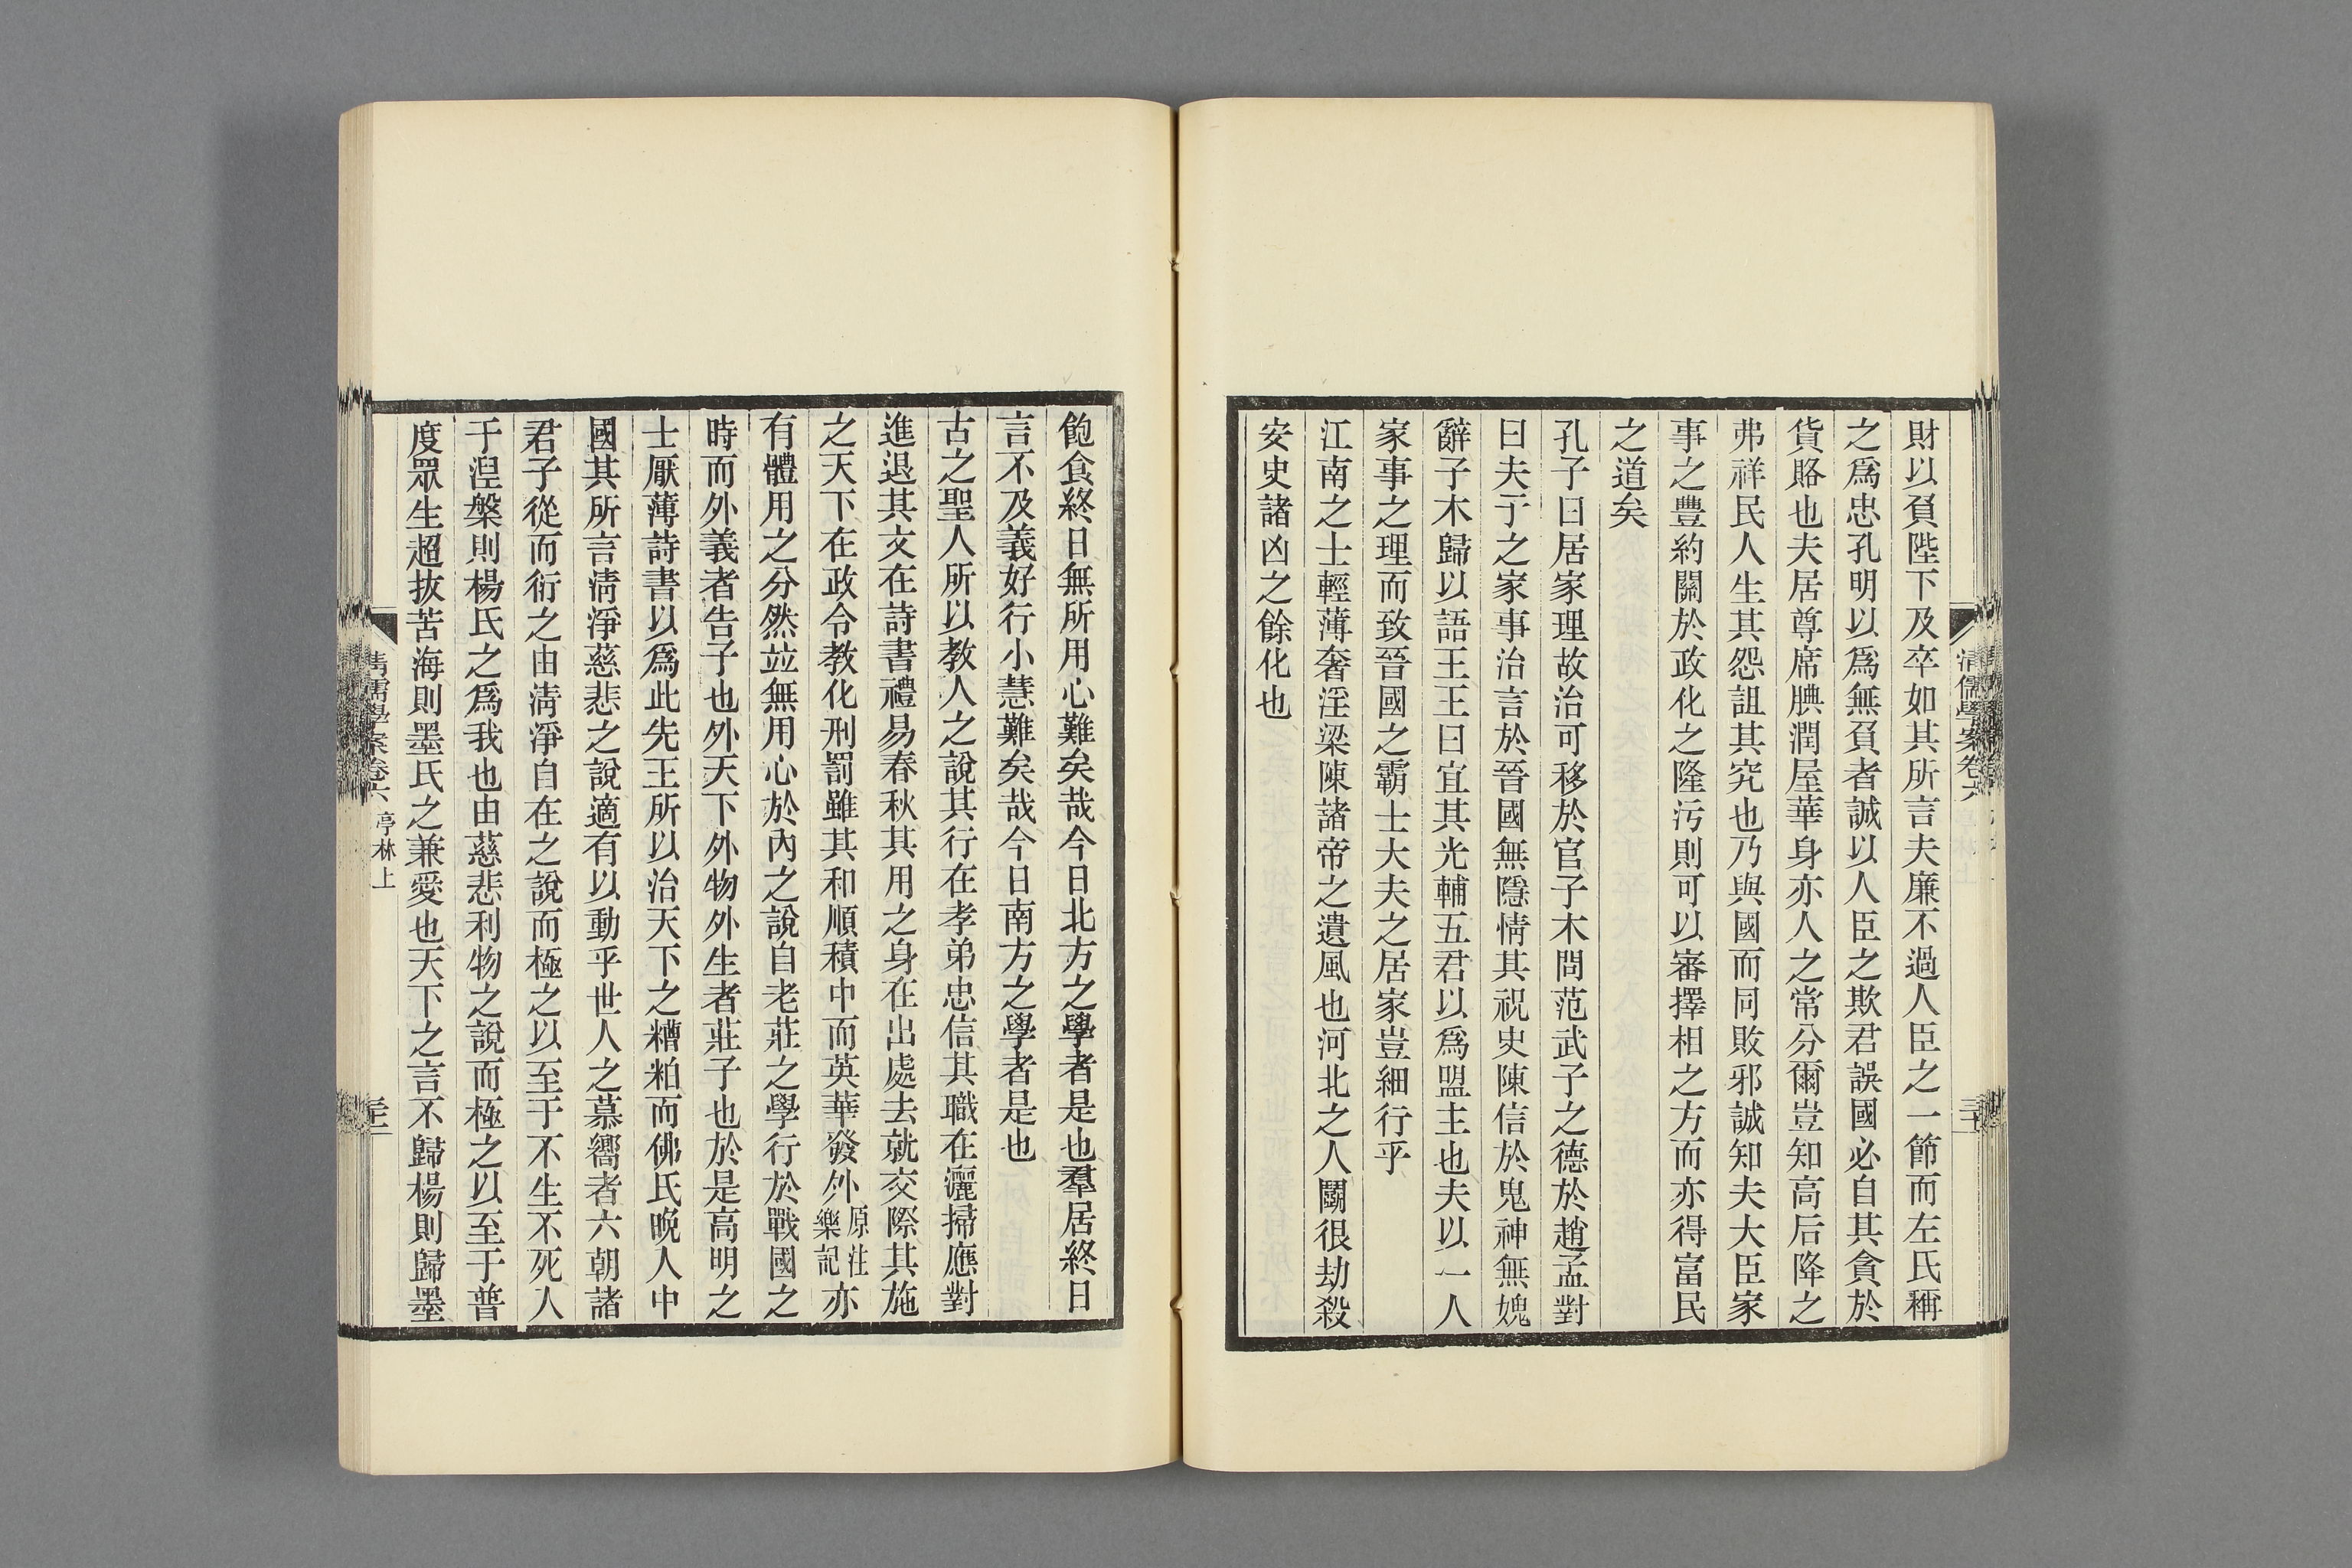 財以負陛下及卒如其所言夫廉不過人臣之一節而左氏稱
之爲忠孔明以爲無負者誠以人臣之欺君誤國必自其貪於
貨賂也夫居尊席腆潤屋華身亦人之常分爾豈知高后降之
弗祥民人生其怨詛其究也乃與國而同敗邪誠知夫大臣家
事之豐約關於政化之隆污則可以審擇相之方而亦得富民
之道矣
孔子曰居家理故治可移於官子木問范武子之德於趙孟對
曰夫子之家事治言於晉國無隱情其祝史陳信於鬼神無媿
辭子木歸以語王王曰宜其光輔五君以爲盟主也夫以一人
家事之理而致晉國之霸士大夫之居家豈細行乎
江南之士輕薄奢淫梁陳諸帝之遺風也河北之人鬭很劫殺
安史諸凶之餘化也
清儒學案卷六
飽食終日無所用心難矣哉今日北方之學者是也羣居終日
言不及義好行小慧難矣哉今日南方之學者是也
古之聖人所以教人之說其行在孝弟忠信其職在灑掃應對
進退其文在詩書禮易春秋其用之身在出處去就交際其施
之天下在政令教化刑罰雖其和順積中而英華發外原注樂記亦
有體用之分然竝無用心於內之說自老莊之學行於戰國之
時而外義者告子也外天下外物外生者莊子也於是高明之
士厭薄詩書以爲此先王所以治天下之糟粕而佛氏晚人中
國其所言淸淨慈悲之說適有以動乎世人之慕嚮者六朝諸
君子從而衍之由淸淨自在之說而極之以至于不生不死人
于涅槃則楊氏之爲我也由慈悲利物之說而極之以至于普
度眾生超拔苦海則墨氏之兼愛也天下之言不歸楊則歸墨
清儒學案卷六 亭林上